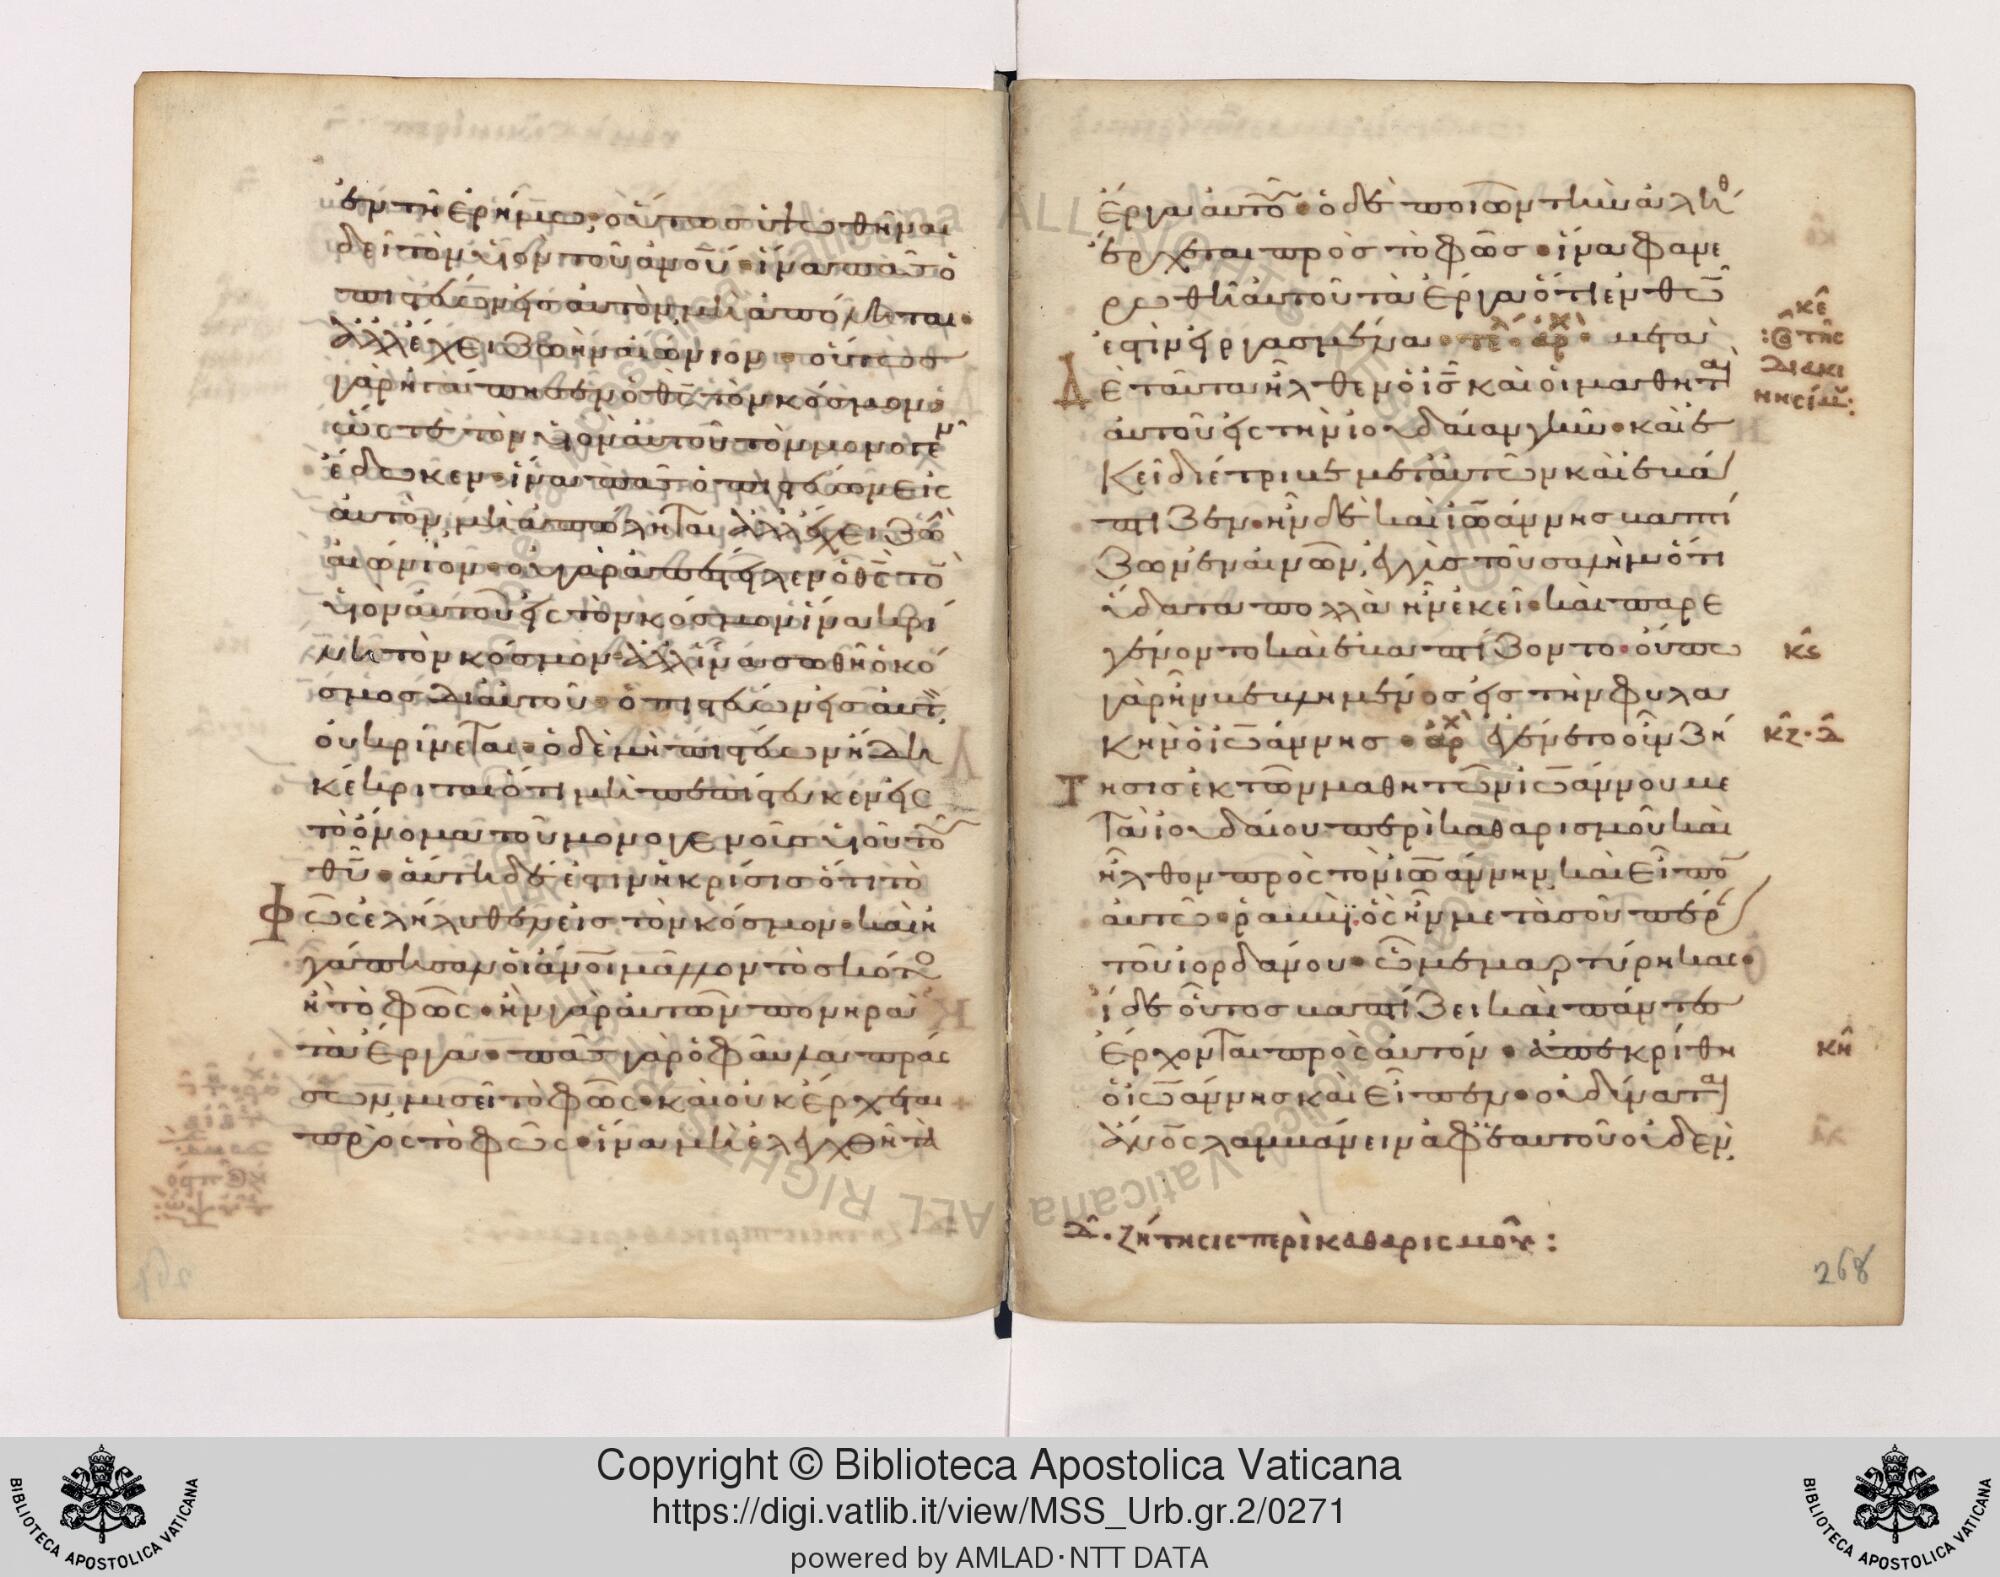 ἐν τῇ ἐρήμω· οὕτως ὑψωθῆναι
δεῖ τὸν υἱὸν τοῦ ἀνου· ἵνα πᾶς ὁ
πιστεύων εἰς αὐτὸν, μὴ ἀπόληται·
ἀλλ' ἔχει ζωὴν αἰώνιον· οὕτως
γὰρ ἠγάπησεν ὁ θς τὸν κόσμον,
ὥστε τὸν υἱὸν αὐτοῦ τὸν μονογενῆ
ἔδωκεν· ἵνα πᾶς ὁ πιστεύων εἰς
αὐτὸν, μὴ ἀπόληται ἀλλ' ἔχει ζωὴ
αἰώνιον· οὐ γὰρ ἀπέστειλεν ὁ θς τὸ
υἱὸν αὐτοῦ εἰς τὸν κόσμον ἵνα κρί
νη τὸν κόσμον· ἀλλ' ἵνα σωθῆ ὁ κό
σμος δι' αὐτοῦ· ὁ πιστεύων εἰς αὐτ,
οὐ κρίνεται· ὁ δὲ μὴ πιστεύων ἤδη
κέκριται ὅτι μὴ πεπίστευκεν εἰς
τὸ ὄνομα τοῦ μονογενοῦς υἱοῦ τοῦ
θυ· αὕτη δέ ἐστιν ἡ κρίσις ὅτι τὸ
φῶς ἐλήλυθεν εἰς τὸν κόσμον· καὶ ἠ
γάπησαν οἱ ἄνοι μᾶλλον τὸ σκότο
ἢ τὸ φῶς· ἦν γὰρ αὐτῶν πονηρὰ
τὰ ἔργα· πᾶς γὰρ ὁ φαῦλα πράσ
σων μισεῖ τὸ φῶς· καὶ οὐκ ἔρχεται
πρὸς τὸ φῶς· ἵνα μὴ ἐλεγχθῆ τὰ
ἔργα αὐτοῦ· ὁ δὲ ποιῶν τὴν ἀλήθ
ἔρχεται πρὸς τὸ φῶς· ἵνα φανε
ρωθῆ αὐτοῦ τὰ ἔργα ὅτι ἐν θω
ἐστὶν εἰργασμένα· τελ· ἀρχ· μετὰ
δὲ ταῦτα ἦλθεν ὁ ις καὶ οἱ μαθηταὶ
αὐτοῦ εἰς τὴν ἰουδαίαν γῆν· καὶ ἐ
κεῖ διέτριβε μετ' αὐτῶν καὶ ἐβά
πτιζεν· ἦν δὲ καὶ ἰωάννης βαπτί
ζων ἐν αἰνῶν, ἐγγὺς τοῦ σαλὴμ ὅτι
ὕδατα πολλὰ ἦν ἐκεῖ· καὶ παρε
γένοντο καὶ ἐβαπτίζοντο· οὔπω
γὰρ ἦν βεβλημένος εἰς τὴν φυλα
κὴν ὁ ἰωάννης· ἀρχ ἐγένετο οὖν ζή
τησις ἐκ τῶν μαθητῶν ἰωάννου με
τὰ ἰουδαίου περὶ καθαρισμοῦ καὶ
ἦλθον πρὸς τὸν ἰωάννην, καὶ εἶπο
αὐτῶ· ῥαββὶ, ὃς ἦν μετὰ σοῦ πέρ
τοῦ ἰορδάνου· ὧ μεμαρτύρηκας·
ἴδε οὗτος βαπτίζει καὶ πάντες
ἔρχονται πρὸς αὐτόν· ἀπεκρίθη
ὁ ἰωάννης καὶ εἶπεν· οὐ δύναται
ἀνος λαμβάνειν ἀφ' ἑαυτοῦ οὐδὲν,
κε
τῆς
διακι
νησίμ:
κς
κζ· δ
κη
δ· ζήτησις περὶ καθαρισμοῦ:
268
Copyright © Biblioteca Apostolica Vaticana
https://digi.vatlib.it/view/MSS_Urb.gr.2/0271
powered by AMLAD·NTT DATA
BIBLIOTECA APOSTOLICA VATICANA
BIBLIOTECA APOSTOLICA VATICANA